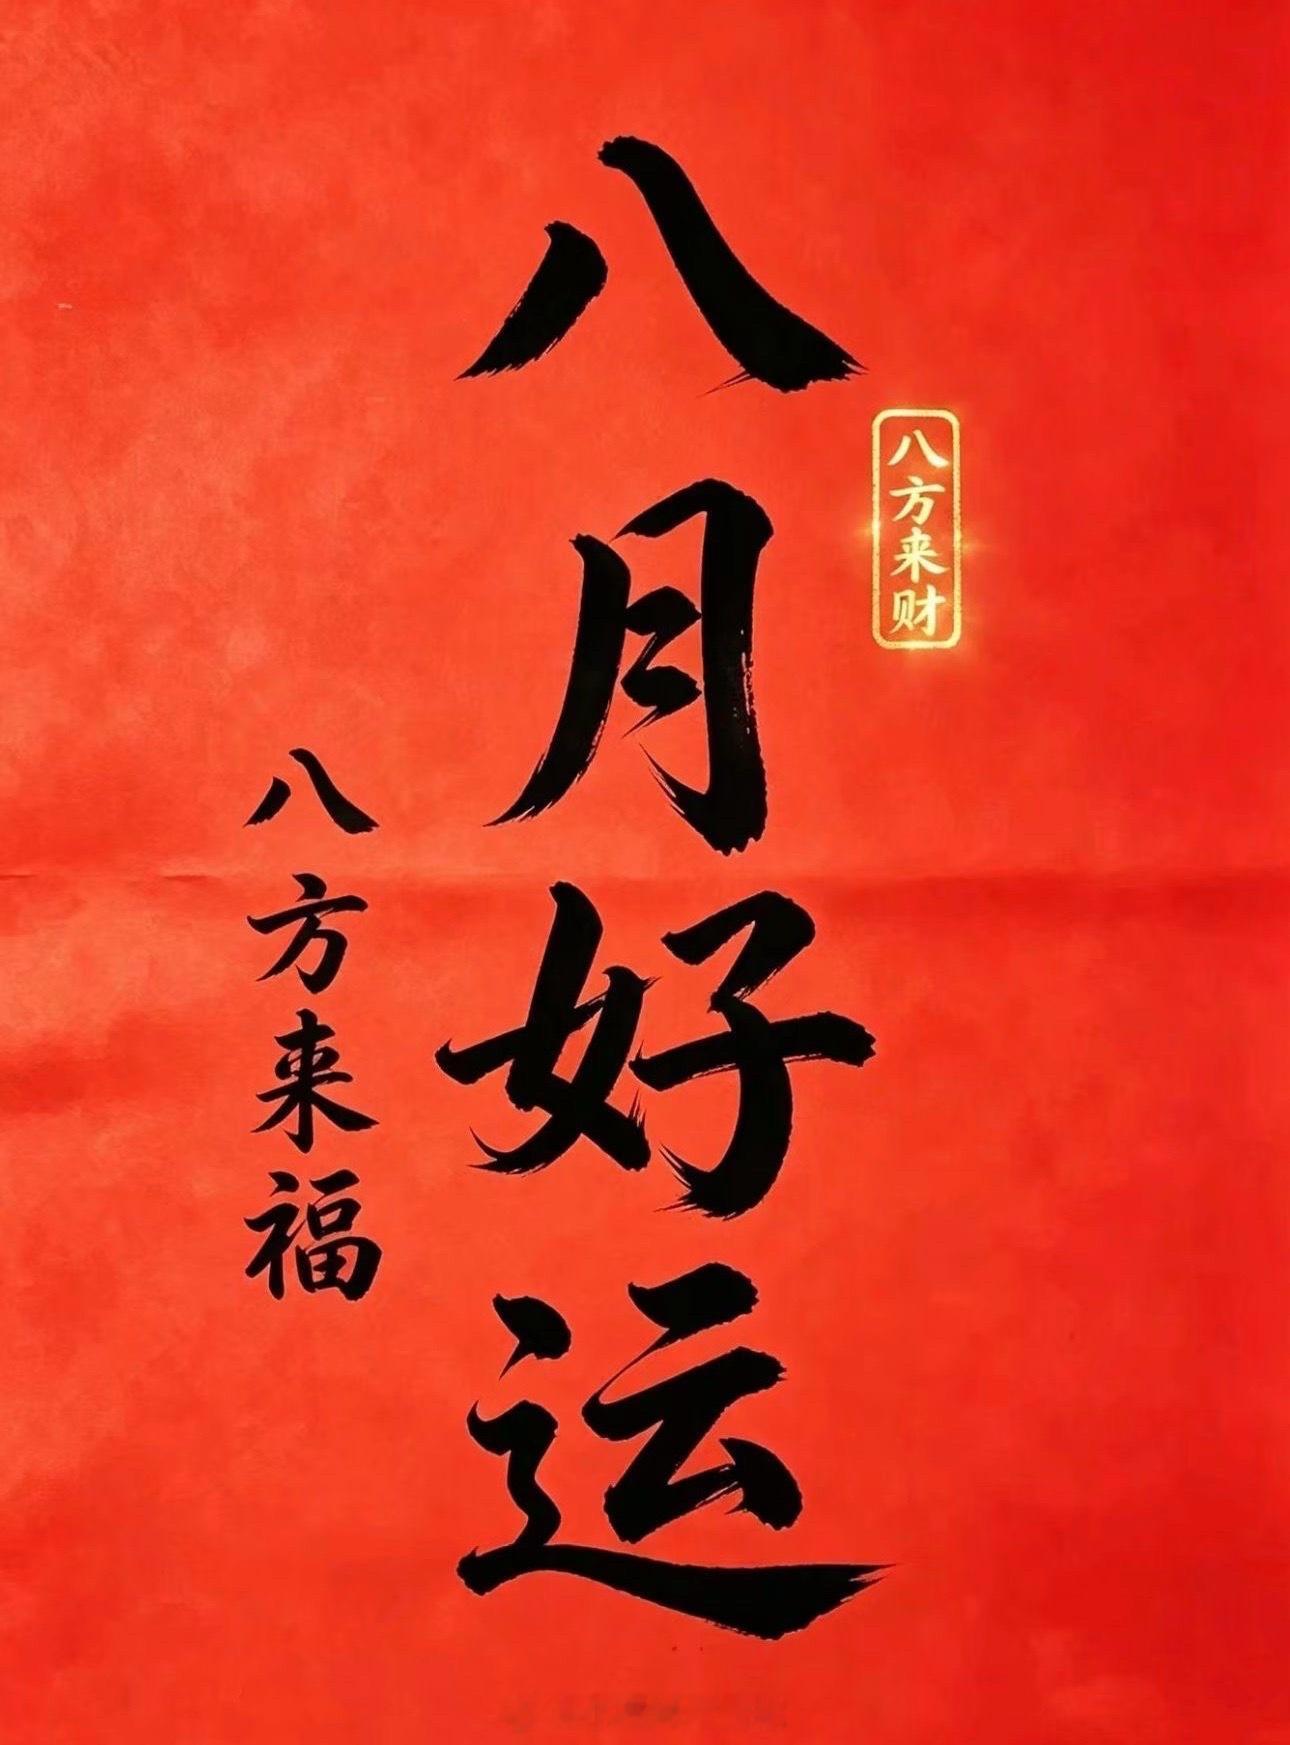 八方来财
八月好运
八方来福